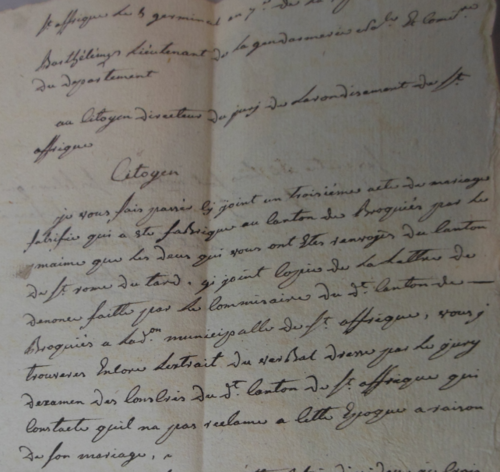 St affrique Le 5 germinal an 7e de La
Barthélemy Lieutenant de La gendarmerie
du departement
au Citoyen directeur du jury de Larondisement de St
affrique
Citoyen
je vous fais passer cy joint un troisiéme acte de mariage
falsifié qui a été fabriqué au canton de Broquiés par le
maime que les deux qui vous ont étes renvoyés du canton
de St rome du tard. cy joint copie de La Lettre de
denonce faitte par le Commisaire du dt. canton de
Broquiés a Ladon municipalle de St affrique, vous y
trouveres Encore Lextrait du verbal dressé par le jury
dexamen des Conscrits du dt canton de St affrique qui
Constacte quil na pas reclamé a cette Epoque a raison
de son mariage,